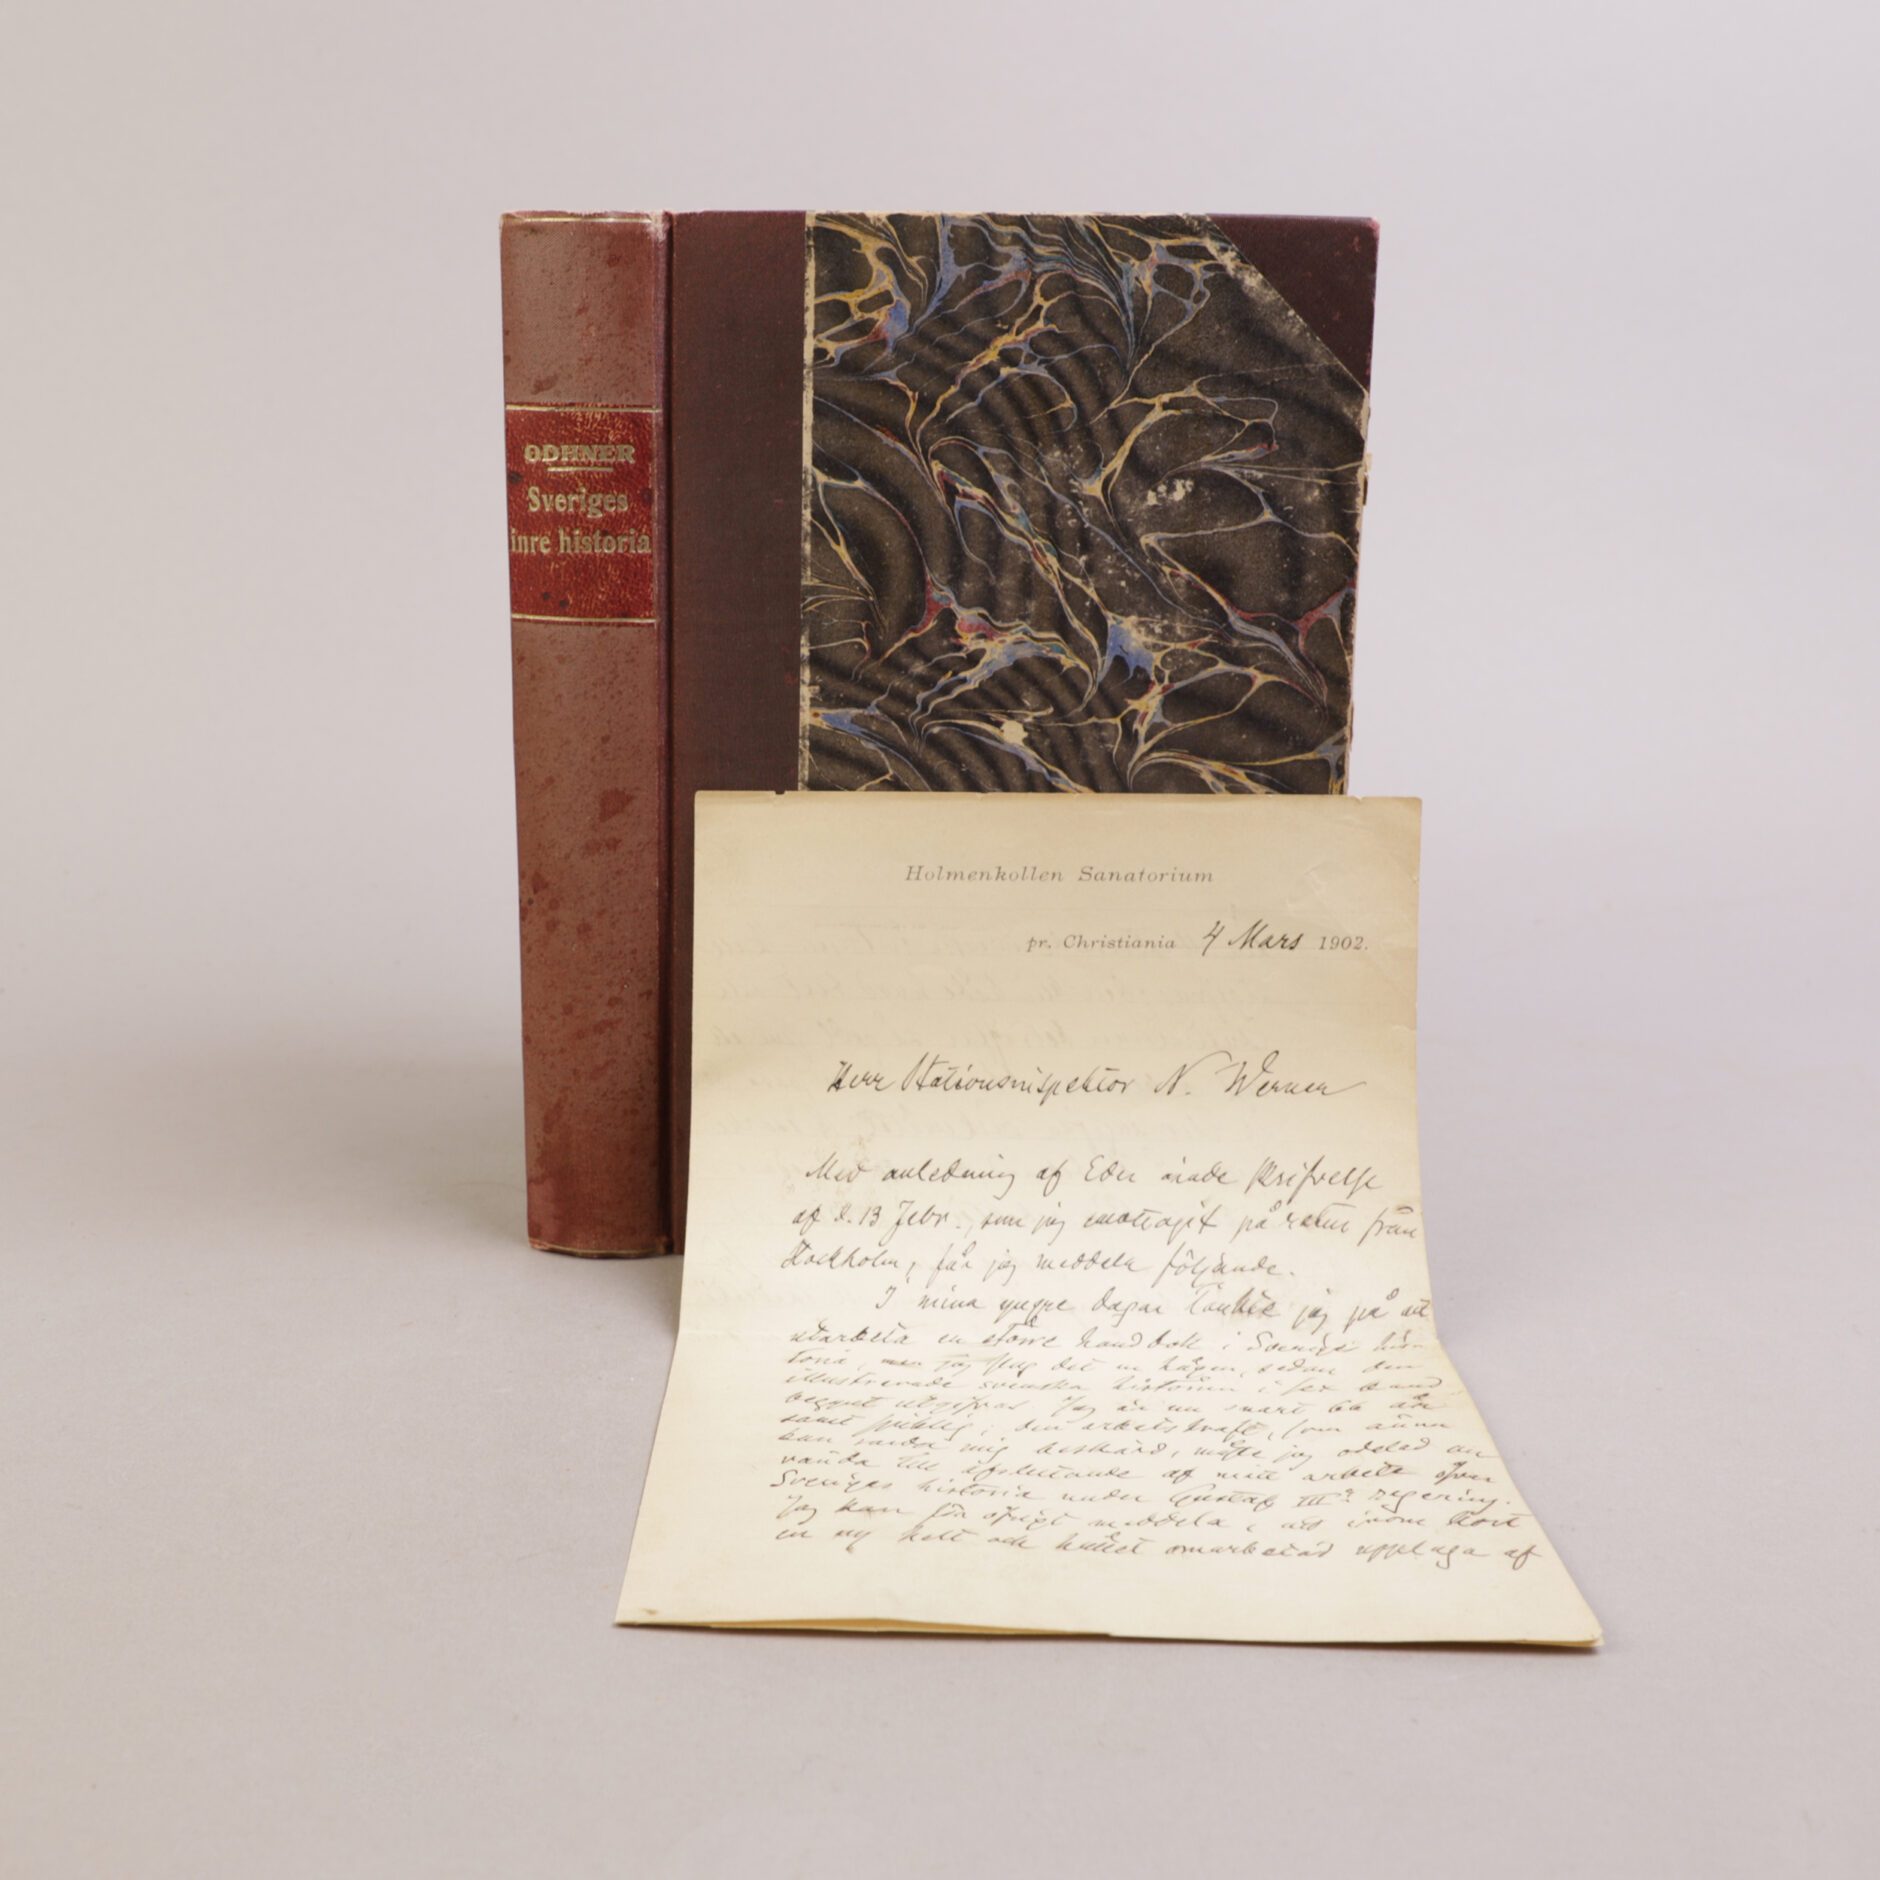 ODHNER
Sveriges
inre historia
Holmenkollen Sanatorium
pr. Christiania 4 Mars 1902.
Herr Stationsinspektor N. Werner
Med anledning af Eder ärade skrifvelse
af d. 13 Febr., som jag emottagit på resan från
Stockholm, får jag meddela följande.
I mina yngre dagar tänkte jag på att
utarbeta en större handbok i Sveriges his-
toria, men jag slog det ur hågen, sedan den
illustrerade svenska historien i sex band
begynt utgifvas. Jag är nu snart 66 år
samt sjuklig; den arbetskraft, som ännu
kan vara mig beskärd, måste jag odelad an-
vända till afslutande af mitt arbete öfver
Sveriges historia under Gustaf III:s regering.
Jag kan för öfrigt meddela, att inom kort
en ny helt och hållet omarbetad upplaga af